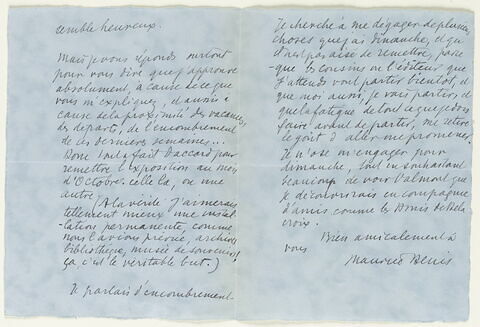 semble heureux.
Mais je vous réponds surtout
pour vous dire que j'approuve
absolument, à cause de ce que
vous m'expliquez, et aussi à
cause de la proximité des vacances,
des départs, de l'encombrement
de ces dernières semaines...
Donc tout à fait d'accord pour
remettre l'exposition au mois
d'Octobre. celle là, ou une
autre.
(A la vérité j'aimerais
tellement mieux une instal-
lation permanente, comme
nous l'avions prévue, archives
bibliothèque, musée de souvenirs!
ça c'est le véritable but.)
Je parlais d'encombrement.
Je cherche à me dégager de plusieurs
choses que j'ai dimanche, et qu'
il n'est pas aisé de remettre, parce
que les cousins ou l'éditeur que
j'attends vont partir bientôt, et
que moi aussi, je vais partir, et
que la fatigue de tout ce que je dois
faire avant de partir, me retire
le goût d'aller me promener.
Je n'ose m'engager pour
dimanche, tout en souhaitant
beaucoup de voir Valmont que
je découvrirais en compagnie
d'amis comme les Amis de Dela
croix.
Bien amicalement à
vous
Maurice Denis